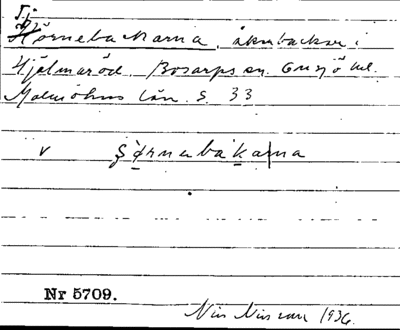 Sj
Hörnebackarna, åkerbackar i
Hjälmaröd. Bosarps sn. Onsjö hd.
Malmöhus län. S. 33
v şörnebakarna
Nr 5709.
Nils Nilsson 1936.